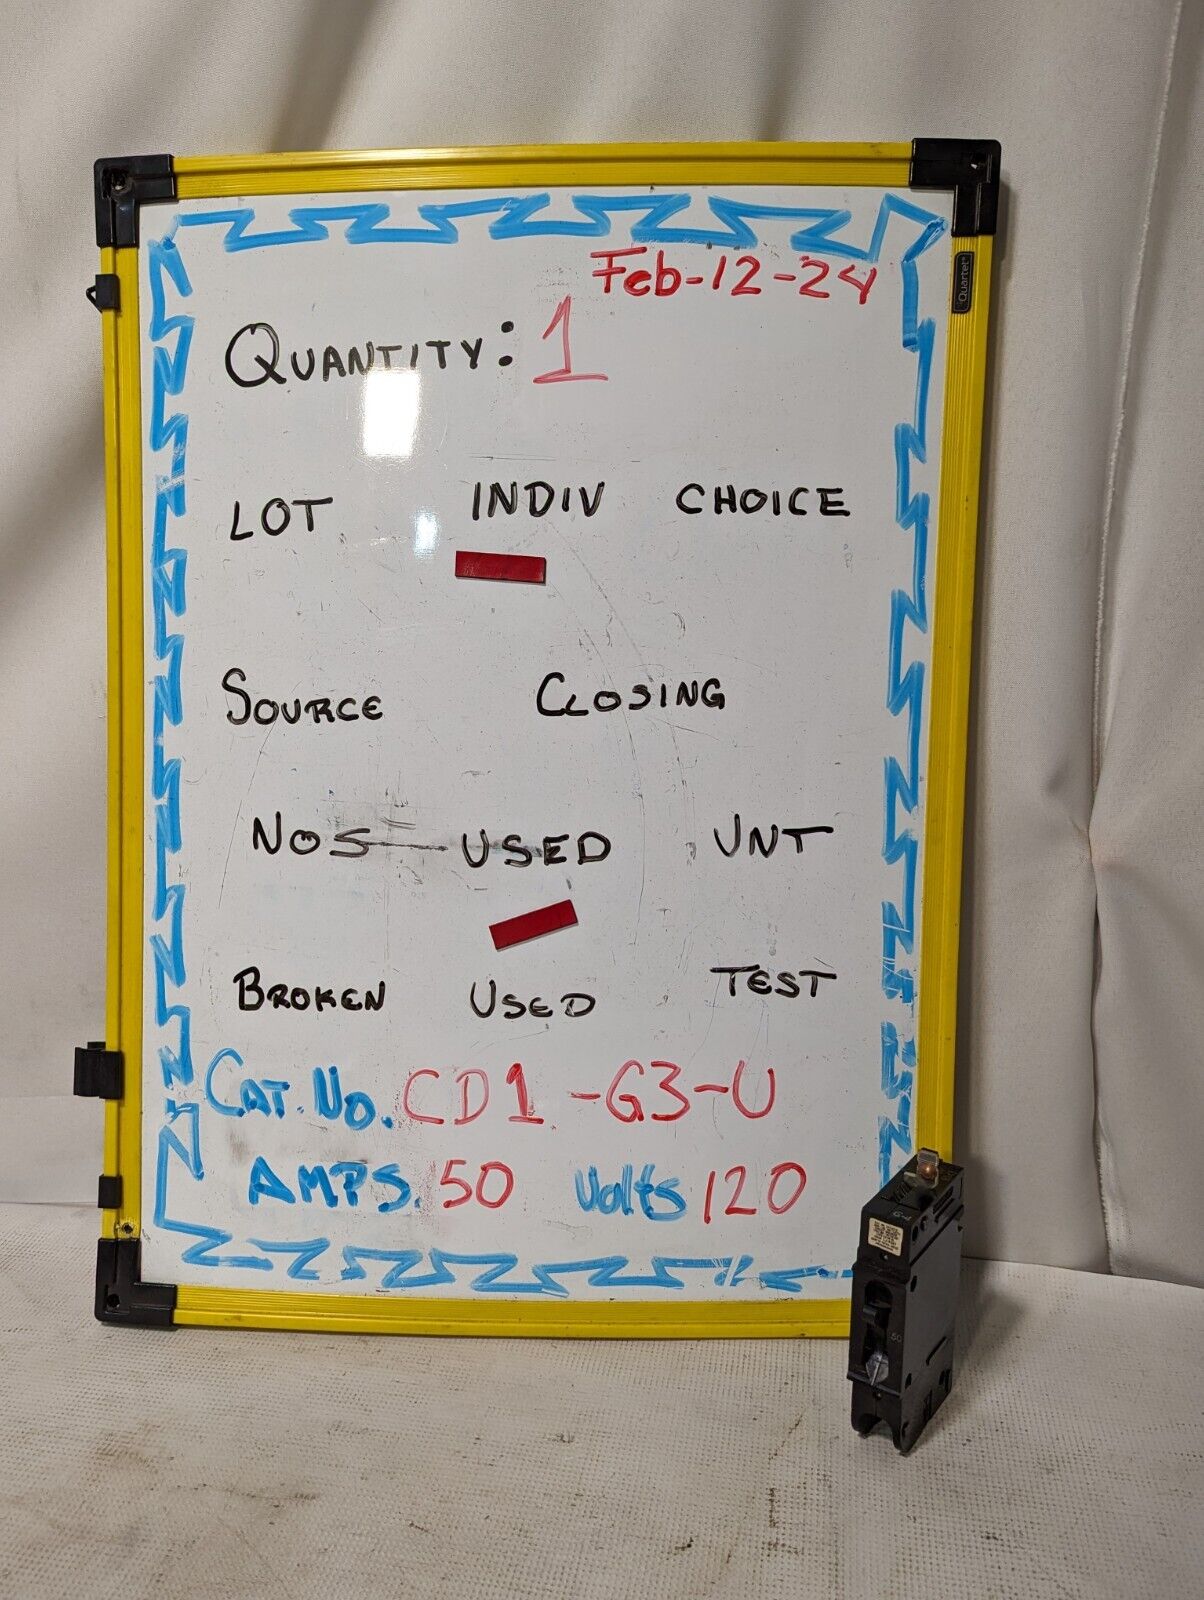 Feb-12-24
Quartet
QUANTITY: 1
LOT INDIV CHOICE
SOURCE CLOSING
NOS USED UNT
BROKEN USED TEST
CAT. NO. CD1-G3-U
AMPS. 50 Volts 120
50